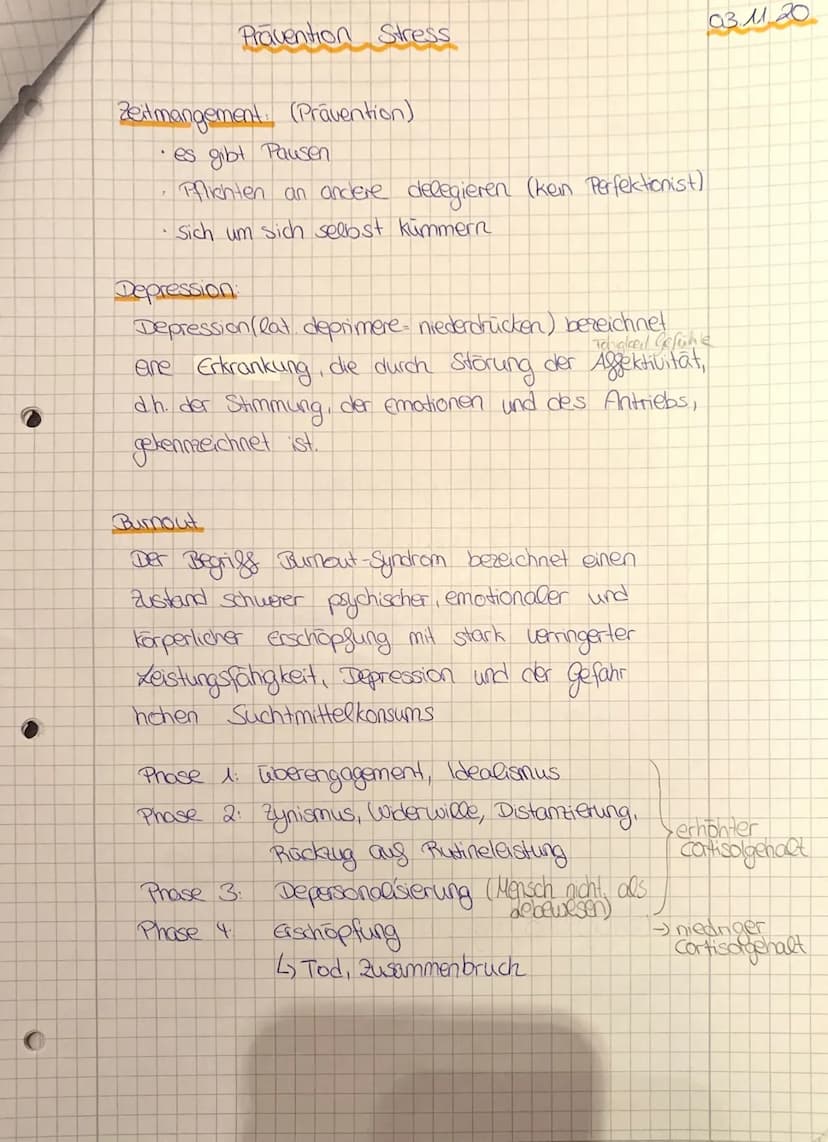 03.11.20
Prävention Stress
Zeitmangement: (Prävention)
· es gibt Pausen
· Pflichten an andere delegieren (kein Perfektionist)
· sich um sich selbst kümmern
Depression:
Depression (lat. deprimere = niederdrücken) bezeichnet
Gefühle
eine Erkrankung, die durch Störung der Affektivität,
d.h. der Stimmung, der Emotionen und des Antriebs,
gekennzeichnet ist.
Burnout
Der Begriff Burnout-Syndrom bezeichnet einen
Zustand schwerer psychischer, emotionaler und
körperlicher Erschöpfung mit stark verringerter
Leistungsfähigkeit, Depression und der Gefahr
hohen Suchtmittelkonsums
Phase 1: Überengagement, Idealismus
Phase 2: Zynismus, Widerwille, Distanzierung,
Rückzug auf Rutineleistung
erhöhter
Cortisolgehalt
Phase 3: Depersonalisierung (Mensch nicht als
lebewesen)
Phase 4: Erschöpfung
→ niedriger
Cortisolgehalt
↳ Tod, Zusammenbruch